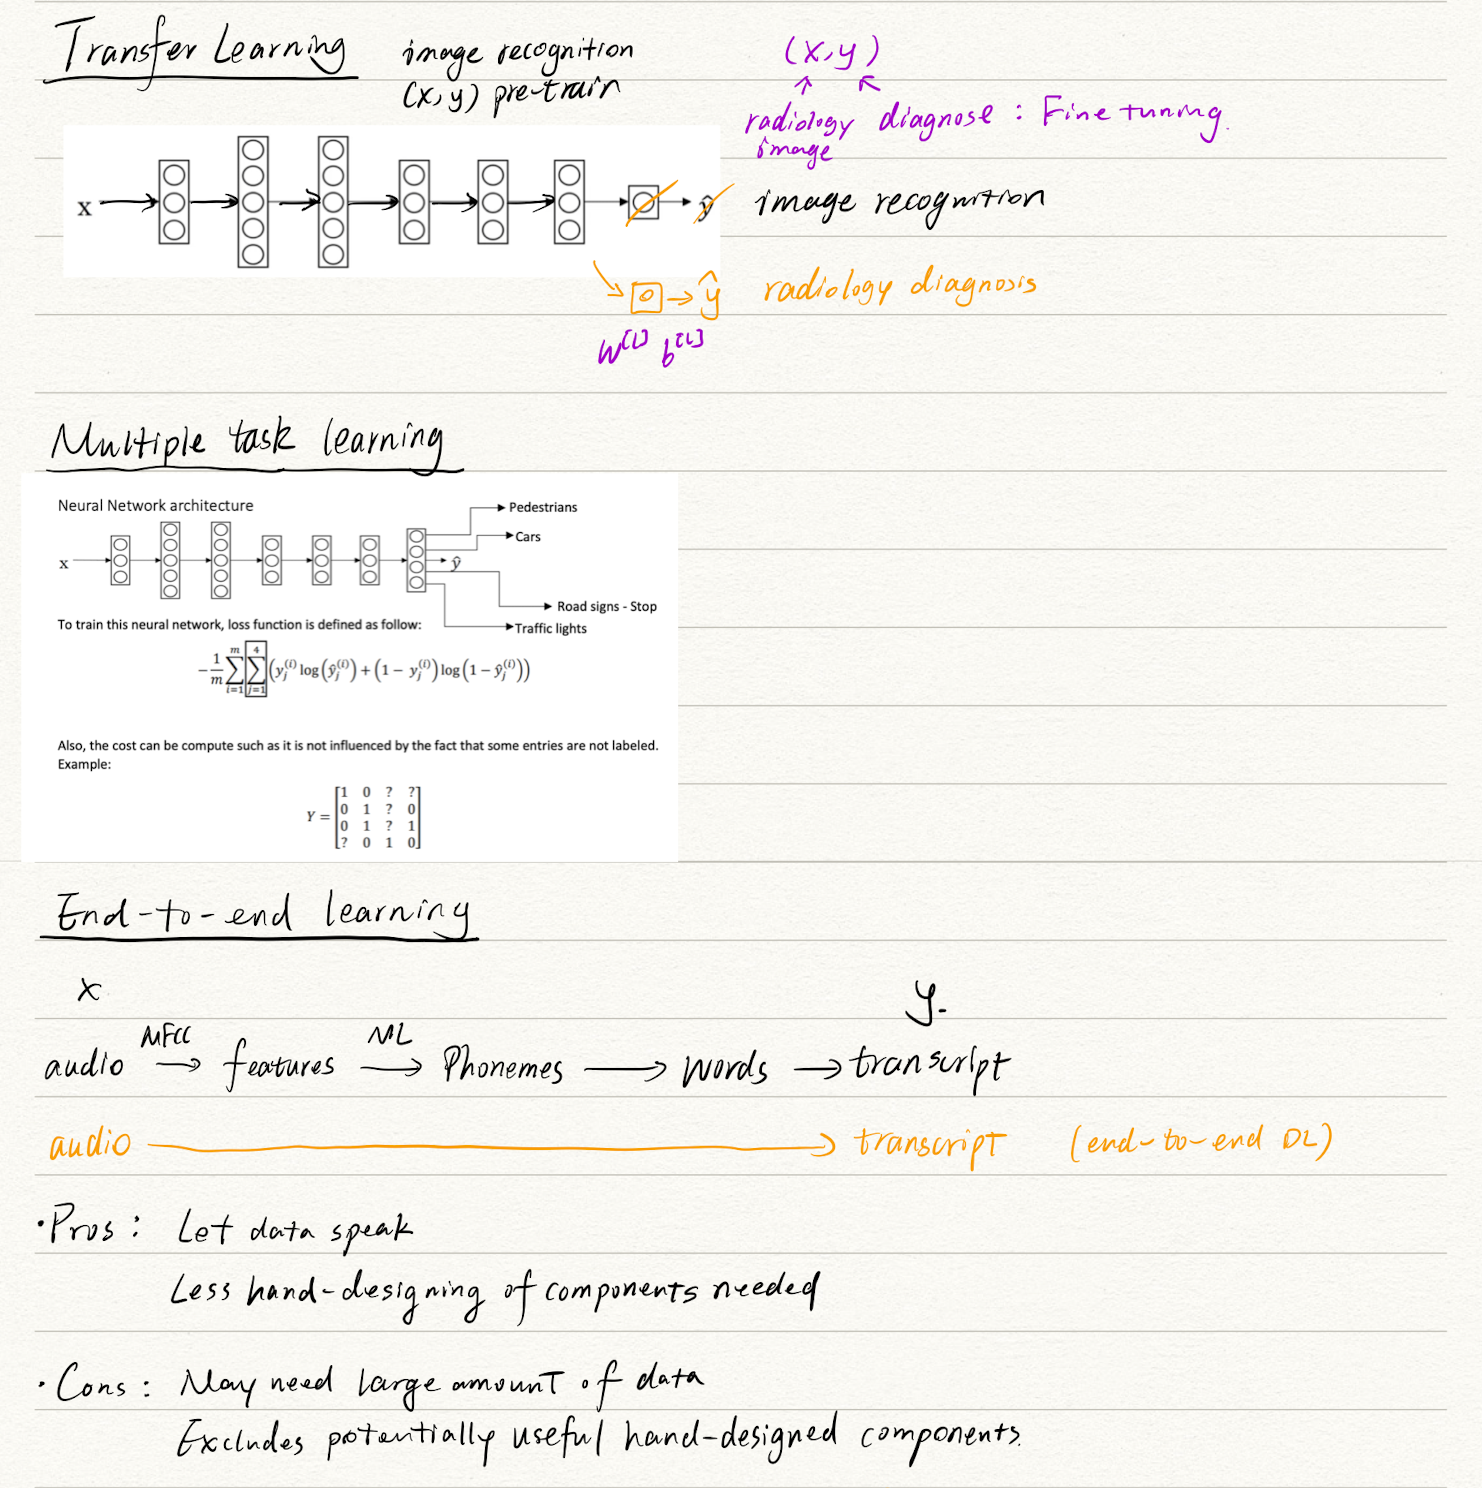 Transfer Learning
image recognition
(x, y) pre-train
(x, y)
radiology image
diagnose : Fine tunning.
x
ŷ
image recognition
ŷ radiology diagnosis
W^[L] b^[L]
Multiple task learning
Neural Network architecture
Pedestrians
Cars
x
ŷ
Road signs - Stop
To train this neural network, loss function is defined as follow:
Traffic lights
-1/m ∑_{i=1}^{m} ∑_{j=1}^{4} (y_j^(i) log(ŷ_j^(i)) + (1 - y_j^(i)) log(1 - ŷ_j^(i)))
Also, the cost can be compute such as it is not influenced by the fact that some entries are not labeled.
Example:
Y =
1 0 ? ?
0 1 ? 0
0 1 ? 1
? 0 1 0
End-to-end learning
x y.
MFCC ML
audio → features → Phonemes → words → transcript
audio → transcript (end-to-end DL)
· Pros : Let data speak
Less hand-designing of components needed
· Cons : May need large amount of data
Excludes potentially useful hand-designed components.